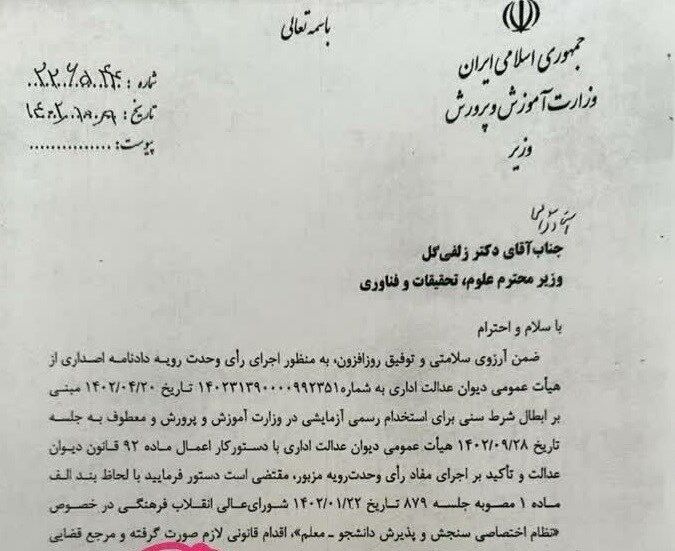 باسمه تعالی
جمهوری اسلامی ایران
وزارت آموزش و پرورش
وزیر
شماره:
تاریخ:
پیوست: ...............
جناب‌آقای دکتر زلفی‌گل
وزیر محترم علوم، تحقیقات و فناوری
با سلام و احترام
ضمن آرزوی سلامتی و توفیق روزافزون، به منظور اجرای رأی وحدت رویه دادنامه اصداری از
هیأت عمومی دیوان عدالت اداری به شماره ۱۴۰۲۳۱۳۹۰۰۰۰۹۹۲۳۵۱ تاریخ ۱۴۰۲/۰۴/۲۰ مبنی
بر ابطال شرط سنی برای استخدام رسمی آزمایشی در وزارت آموزش و پرورش و معطوف به جلسه
تاریخ ۱۴۰۲/۰۹/۲۸ هیأت عمومی دیوان عدالت اداری با دستورکار اعمال ماده ۹۲ قانون دیوان
عدالت و تأکید بر اجرای مفاد رأی وحدت‌رویه مزبور، مقتضی است دستور فرمایید با لحاظ بند الف
ماده ۱ مصوبه جلسه ۸۷۹ تاریخ ۱۴۰۲/۰۱/۲۲ شورای‌عالی انقلاب فرهنگی در خصوص
«نظام اختصاصی سنجش و پذیرش دانشجو ـ معلم»، اقدام قانونی لازم صورت گرفته و مرجع قضایی